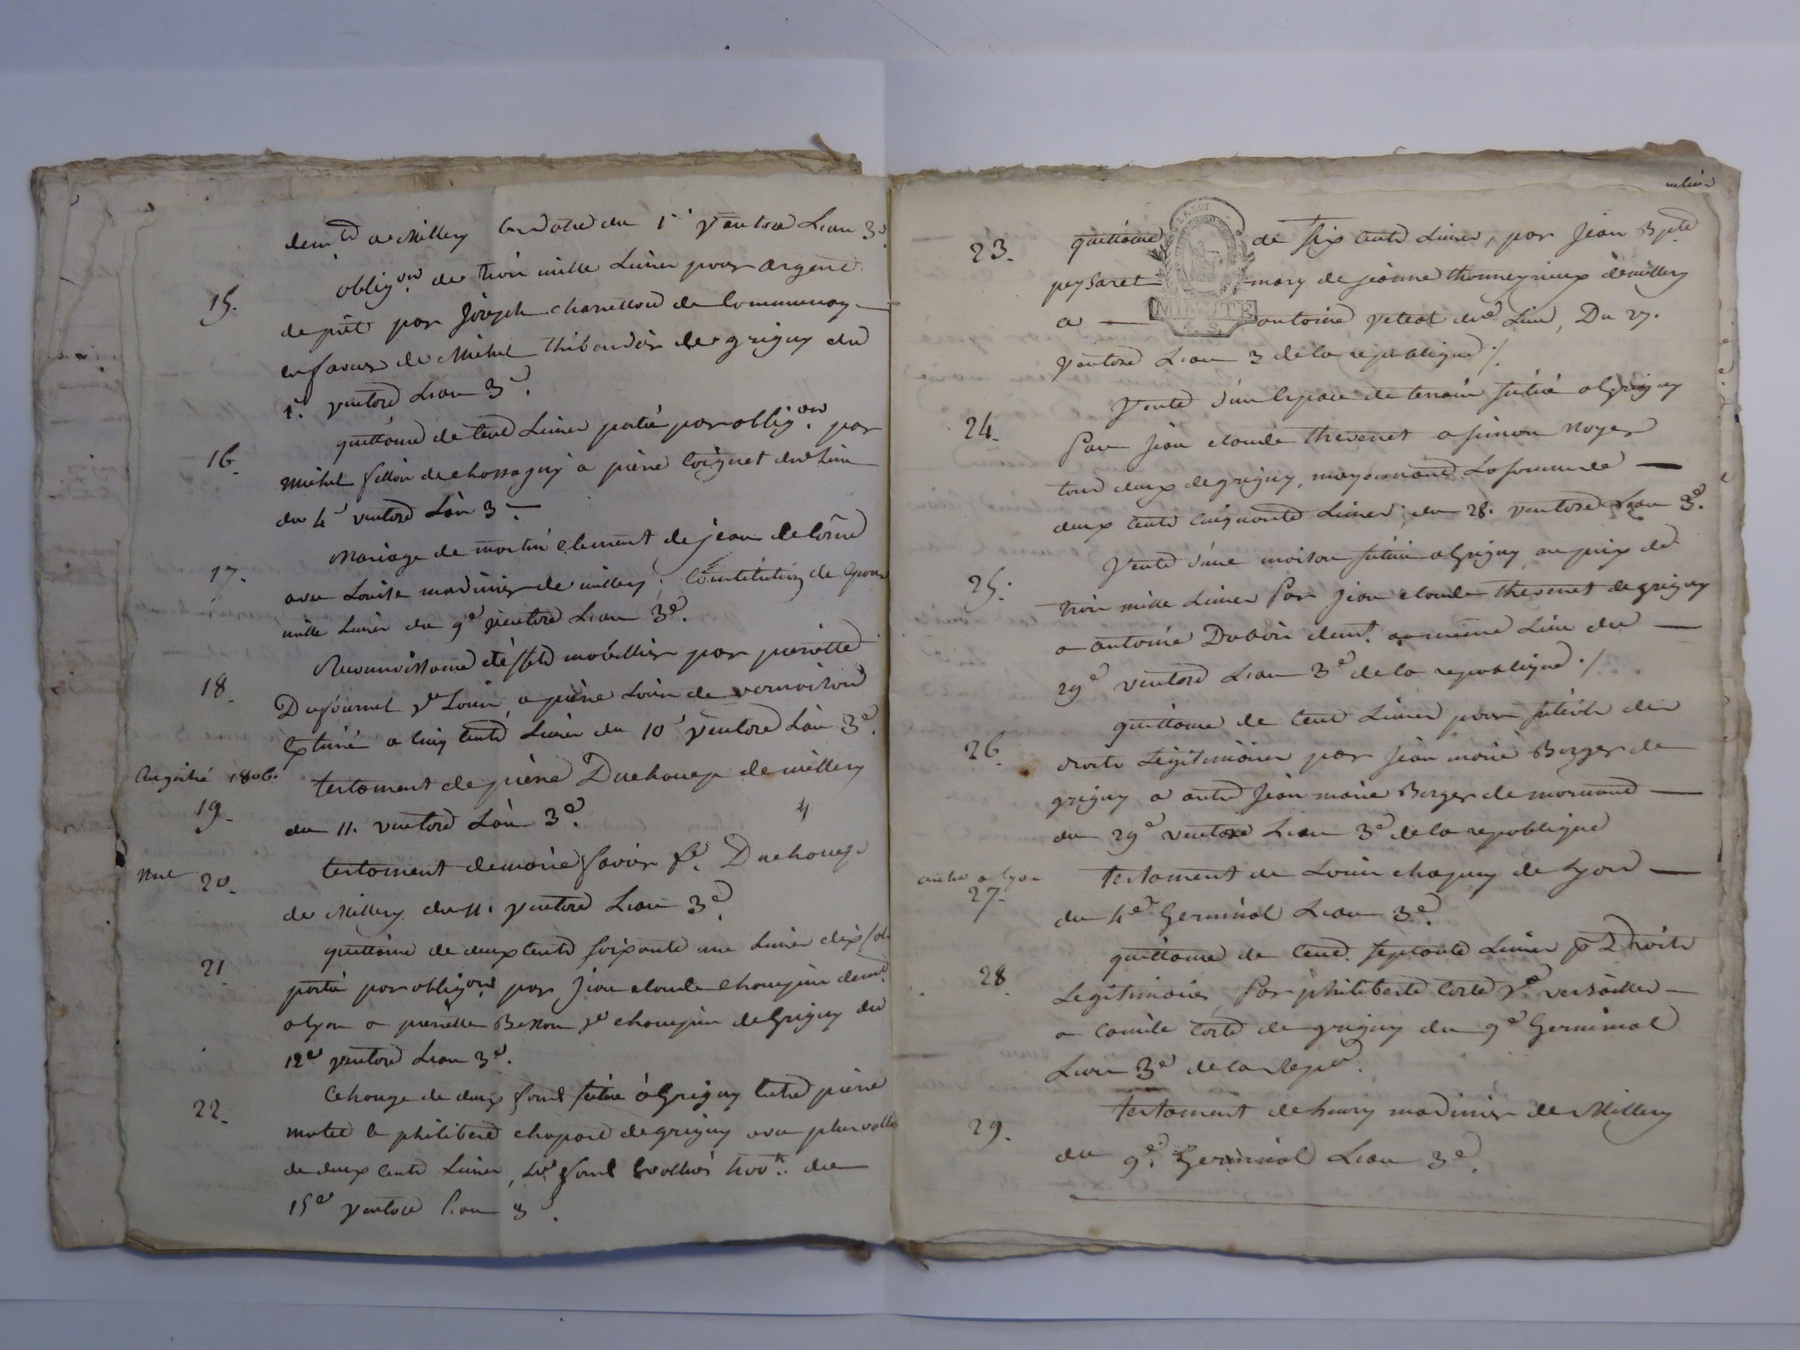 demt a Millery du 1er Ventose Lan 3e
15. obligon de trois mille Livres pour argent
de prêt par Joseph charretton de Communay
en faveur de Michel Thibaudier de grigny du
1er ventose Lan 3e.
16. quittance de cent Livres portée par obligon. par
michel fillon de chassagny à pierre Coignet dud. lieu
du 4e ventose Lan 3
17. Mariage de martin clement de jean de
avec Louise madinier de millery; Constitution de
mille Livres du 9e ventose Lan 3e.
18. Reconnoissance d'effets mobilliers par pierrette
Dufournel ve Louis, a pierre Louis de vernaison
Extimé a cinq cents Livres du 10e ventose Lan 3e.
Enregistré 1806.
19. testament de pierre Duchouge de millery
du 11. ventose Lan 3e.
nul 20. testament de marie favier fe. Duchouge
de Millery du 11. ventose Lan 3e
21. quittance de deux cents soixante une Livres dix sols
portée par obligon. par Jean claude chouquin demt
a lyon a pierrette Besson ve chouquin de Grigny du
12e ventose Lan 3e.
22. Echange de deux fonds situés à Grigny Entre pierre
et philibert chapard de grigny avec plus vallue
de deux cents Livres, du
15e ventose Lan 3.
23. quittance de six cents Livres, par Jean Bpte
peysaret mary de jeanne thonneyrieux de millery
LA LOI
MINUTE
a antoine dud. Lieu, Du 27.
ventose Lan 3 de la republique ./.
24. Vente d'un Espace de terrain situé a Grigny
Par Jean claude thevenet a simon noyer
tous deux de grigny, moyennant La somme de
deux cents cinquante Livres du 28. ventose Lan 3e.
25. Vente d'une maison située a Grigny, au prix de
trois mille Livres Par Jean claude thevenet de grigny
a antoine Dubois demt. au même Lieu du
29e ventose Lan 3e de la republique ./.
26. quittance de cent Livres pour de
droits Légitimaires par Jean marie Berger de
grigny a autre Jean marie Berger de mornand
du 29e ventose Lan 3e de la republique
27. testament de Louis chapuy de Lyon
du 4e Germinal Lan 3e
28. quittance de cent. septante Livres pr Droits
Legitimaires Par philiberte Corte ve versailles
a Camile Corte de grigny du 9e Germinal
Lan 3e de la Repe.
29. testament de henry madinier de Millery
du 9e. Germinal Lan 3e.